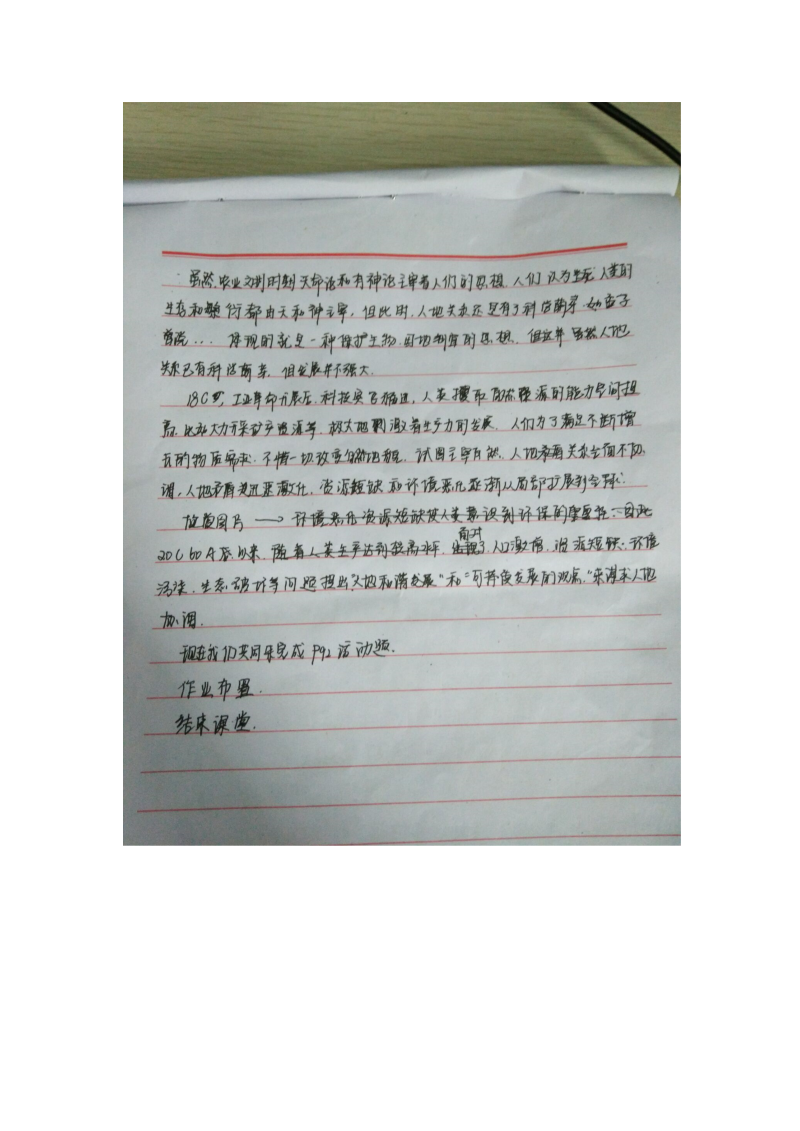 虽然农业文明时期天命论和有神论主宰着人们的思想,人们认为人类的
生存和繁衍都由天和神主宰,但此时,人地关系还是有了科学萌芽.如孟子
曾说... 体现的就是一种保护生物.因功制宜的思想. 但这并虽然人地
关系已有科学萌芽,但发展并不强大.
18C 工业革命开展后.科技突飞猛进,人类攫取自然资源的能力空间提
高.比如大力开采矿产资源等,极大地刺激着生产力的发展. 人们为了满足不断增
长的物质需求.不惜一切改变自然地貌,试图主宰自然.人地关系全面不协
调,人地矛盾迅速激化,资源短缺和环境恶化逐渐从局部扩展到全球.
放置图片 → 环境恶化资源短缺使人类意识到环保的重要性.因此
20C 60年代以来,随着人类生产达到较高水平, 面对 出现了人口激增,资源短缺.环境
污染.生态破坏等问题提出"人地和谐发展"和"可持续发展的观点"来谋求人地
协调.
现在我们共同来完成 P92 活动题.
作业布置.
结束课堂.